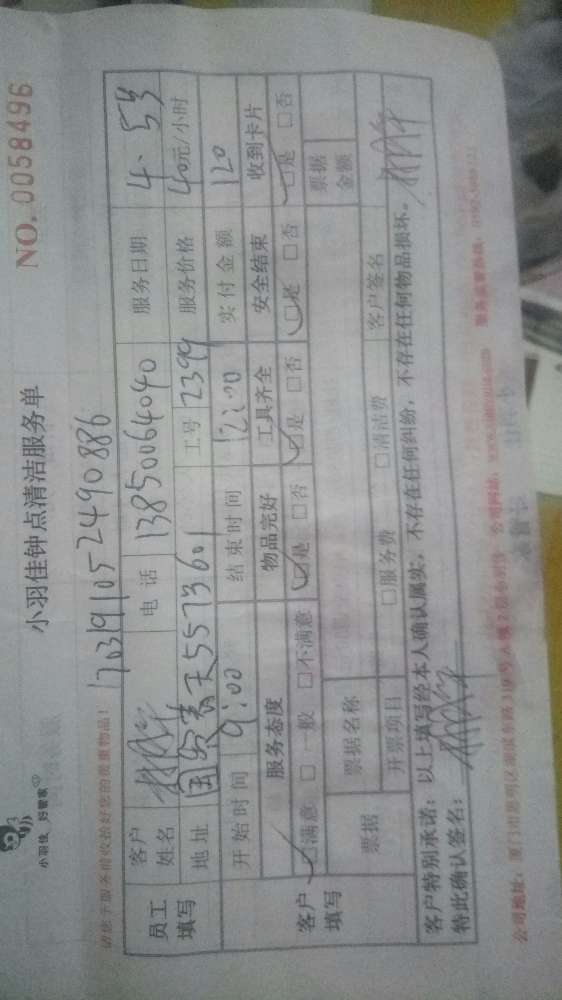 小羽佳 好管家
小羽佳钟点清洁服务单
NO. 0058496
请您于服务前收拾好您的贵重物品!
1703191052490886
员工填写
客户姓名
电话 13850064040
服务日期 4.
地址 国贸春天5573601
工号 2399
服务价格 40元/小时
开始时间 9:00
结束时间 12:00
实付金额 120
客户填写
服务态度 物品完好 工具齐全 安全结束 收到卡片
☑满意 □一般 □不满意 ☑是 □否 ☑是 □否 ☑是 □否 ☑是 □否
票据
票据名称
票据金额
开票项目 □服务费 □清洁费
客户签名
客户特别承诺:以上填写经本人确认属实,不存在任何纠纷,不存在任何物品损坏。
特此确认签名:
公司地址:厦门市思明区湖滨东路
公司网站:
服务监督热线: